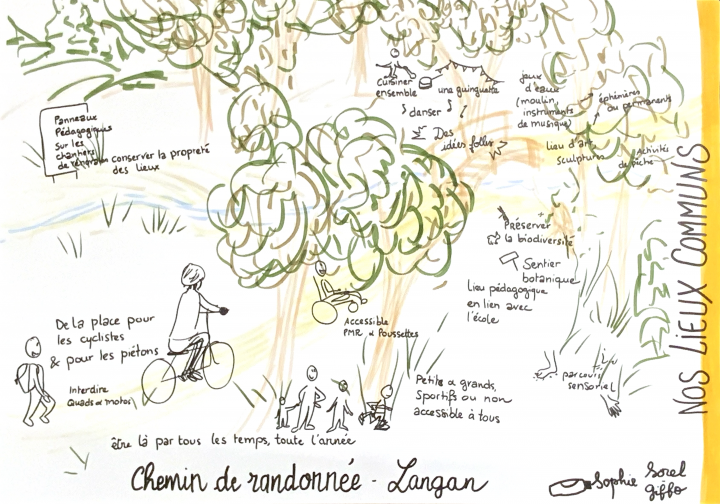 Cuisiner
ensemble
une guinguette
danser
Des
idées folles
jeux
d'eaux
(moulin,
instruments
de musique)
éphémères
ou permanents
lieu d'art,
sculptures
Activités
de pêche
Panneaux
Pédagogiques
sur les
chantiers
de rénovation
conserver la propreté
des lieux
Préserver
la biodiversité
Sentier
botanique
Lieu pédagogique
en lien avec
l'école
De la place pour
les cyclistes
& pour les piétons
Interdire
Quads & motos
Accessible
PMR & Poussettes
Petits & grands,
Sportifs ou non
accessible à tous
parcours
sensoriel
être là par tous les temps, toute l'année
Chemin de randonnée - Langan
NOS LIEUX COMMUNS
Sophie Sorel
giffo